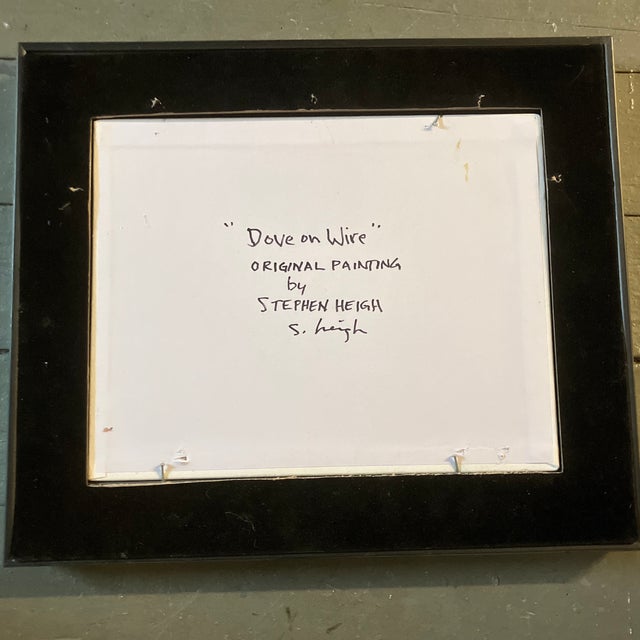 "Dove on Wire"
ORIGINAL PAINTING
by
STEPHEN HEIGH
S. Heigh